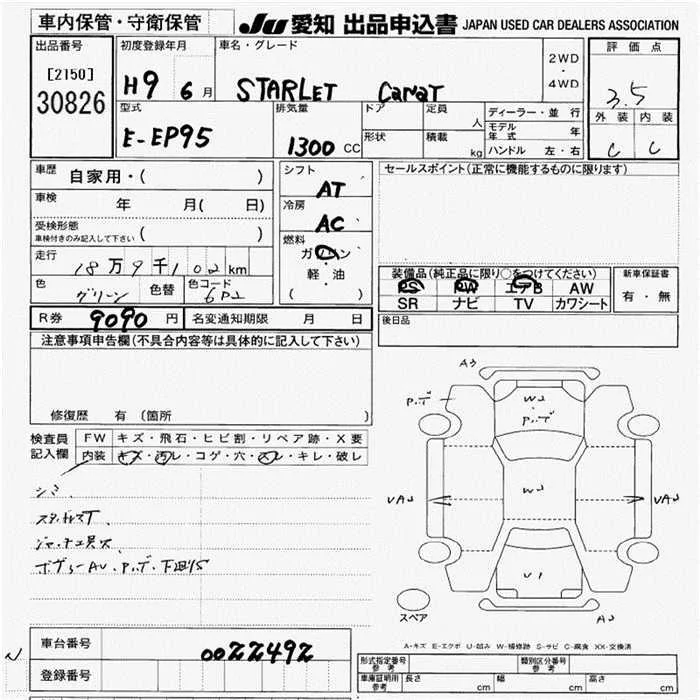 車内保管・守衛保管 JU 愛知 出品申込書 JAPAN USED CAR DEALERS ASSOCIATION
出品番号 初度登録年月 車名・グレード 2WD・4WD 評価点
[2150] H9 6月 STARLET Carat 3.5
30826 型式 排気量 ドア 定員 人 ディーラー・並行 外装 内装
E-EP95 1300 CC 形状 積載 kg モデル年式 年 C C
ハンドル 左・右
車歴 自家用・( ) シフト AT セールスポイント(正常に機能するものに限ります)
車検 年 月( 日) 冷房 AC
受検形態 車検付きのみ記入して下さい 燃料 ガソリン
走行 18万9千102km 軽・油 装備品(純正品に限り○をつけてください) 新車保証書
色 グリーン 色替 色コード 6P2 ( ) PS PW エアB AW 有・無
SR ナビ TV カワシート
R券 9090 円 名変通知期限 月 日 後日品
注意事項申告欄(不具合内容等は具体的に記入して下さい)
A3
P.ボ W2・P.ボ
修復歴 有(箇所 )
検査員記入欄 FW キズ・飛石・ヒビ割・リペア跡・X要
内装 キズ・汚レ・コゲ・穴・スレ・キレ・破レ
シミ W2
UA2 UA2
ボデーAU、P.ボ、下回リS
U1
スペア A2
A-キズ E-エクボ U-凹み W-補修跡 S-サビ C-腐食 XX-交換済
車台番号 0022492
登録番号 形式指定番号 参考 類別区分番号 参考
車庫証明用 参考 長さ cm 幅 cm 高さ cm